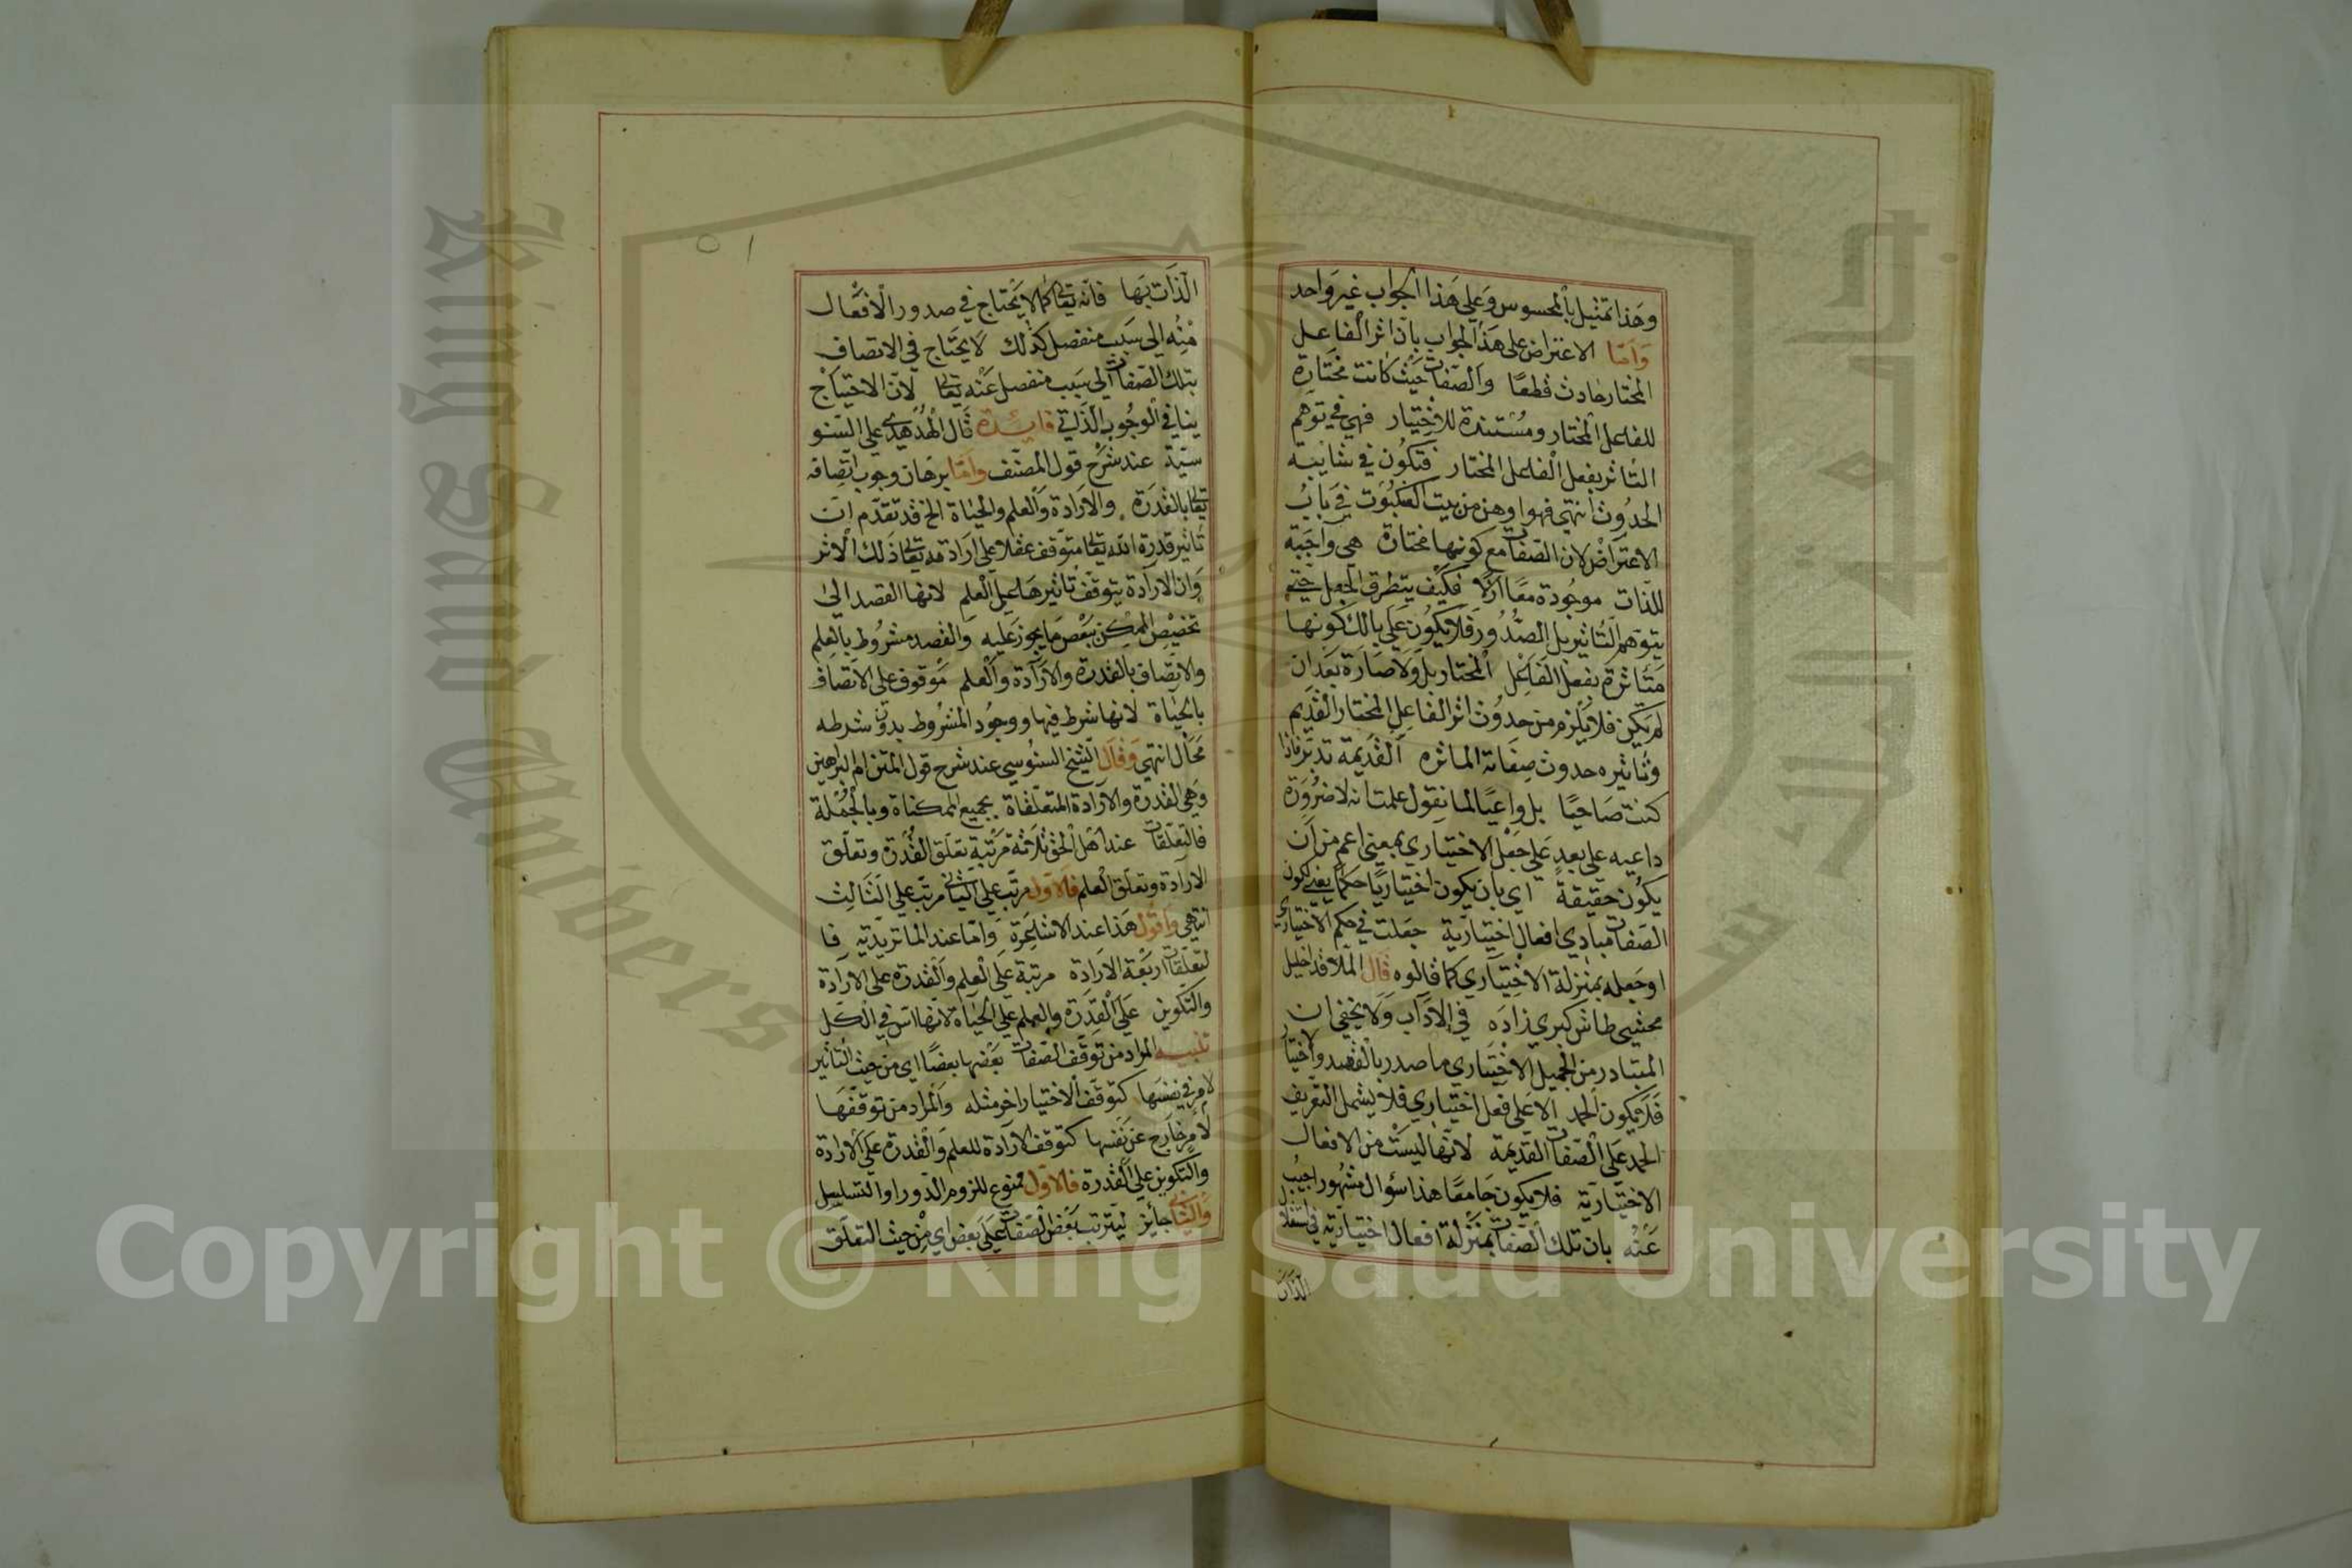 وهذا تمثيل بالمحسوس وعلي هذا الجواب غير واحد
وأما الاعتراض على هذا الجواب بان اثر الفاعل
المختار حادث قطعًا والصفات حيث كانت مختارة
للفاعل المختار ومستندة للاختيار فهي في توهم
التاثر بفعل الفاعل المختار فتكون في شايبة
الحدوث انتهي فهو اوهن من بيت العنكبوت في باب
الاعتراض لان الصفات مع كونها مختارة هي واجبة
للذات موجودة معًا ازلا فكيف يتطرق الجعل حتي
يتوهم التاثير بل الصدور فلا يكون علي بالك كونها
متاثرة بفعل الفاعل المختار بل ولا صارة بعد ان
لم يكن فلا يلزم من حدوث اثر الفاعل المختار القديم
وتاثيره حدوث صفاته الماثره القديمة تدبر فاذا
كنت صاحيًا بل واعيًا لما نقول علمت انه لا ضرورة
داعيه علي بعد علي جعل الاختياري بمعني اعم من ان
يكون حقيقة اي بان يكون اختياريًا حكمًا يعني كون
الصفات مبادي افعال اختيارية جعلت في حكم الاختياري
او جعله بمنزلة الاختياري كما قالوه قال الملا قد اخليل
محشي طاش كبري زاده في الاداب ولا يخفي ان
المتبادر من الجميل الاختياري ما صدر بالقصد والاختيار
فلا يكون الحمد الا علي فعل اختياري فلا يشمل التعريف
الحمد علي الصفات القديمة لانها ليست من الافعال
الاختيارية فلا يكون جامعًا هذا سؤال مشهور اجيب
عنه بان تلك الصفات بمنزلة افعال اختيارية في استقلا
الذات
٥١
الذات بها فانه تعالى كما لا يحتاج في صدور الافعال
منه الي سبب منفصل كذلك لا يحتاج في الاتصاف
بتلك الصفات الي سبب منفصل عنه تعالى لان الاحتياج
ينافي الوجوب الذاتي فايدة قال الهدهدي علي السنو
سية عند شرح قول المصنف واما برهان وجوب اتصافه
تعالى بالقدرة والارادة والعلم والحياة الخ قد تقدم ان
تاثير قدرة الله تعالى متوقف عقلا علي ارادته تعالى ذلك الاثر
وان الارادة يتوقف تاثيرها علي العلم لانها القصد الي
تخصيص الممكن ببعض ما يجوز عليه والقصد مشروط بالعلم
والاتصاف بالقدرة والارادة والعلم موقوف علي الاتصاف
بالحياة لانها شرط فيها ووجود المشروط بدون شرطه
محال انتهي وقال الشيخ السنوسي عند شرح قول المتن ام البراهين
وهي القدرة والارادة المتعلقاة بجميع الممكناة وبالجملة
فالتعلقات عند اهل الحق ثلاثة مرتبة تعلق القدرة وتعلق
الارادة وتعلق العلم فالاول مرتب علي الثاني مرتب علي الثالث
انتهي واقول هذا عند الاشاعرة واما عند الماتريدية فا
لتعلقات اربعة الارادة مرتبة علي العلم والقدرة علي الارادة
والتكوين علي القدرة والعلم علي الحياة لانها اس في الكل
تنبيه المراد من توقف الصفات بعضها بعضًا اي من حيث التاثير
لامر في نفسها كتوقف الاختيار اخر مثله والمراد من توقفها
لامر خارج عن نفسها كتوقف الارادة للعلم والقدرة علي الارادة
والتكوين علي القدرة فالاول ممنوع للزوم الدور او التسلسل
والثاني جائز ليترتب بعض الصفات علي بعض اي من حيث التعلق
Copyright © King Saud University
King Saud University